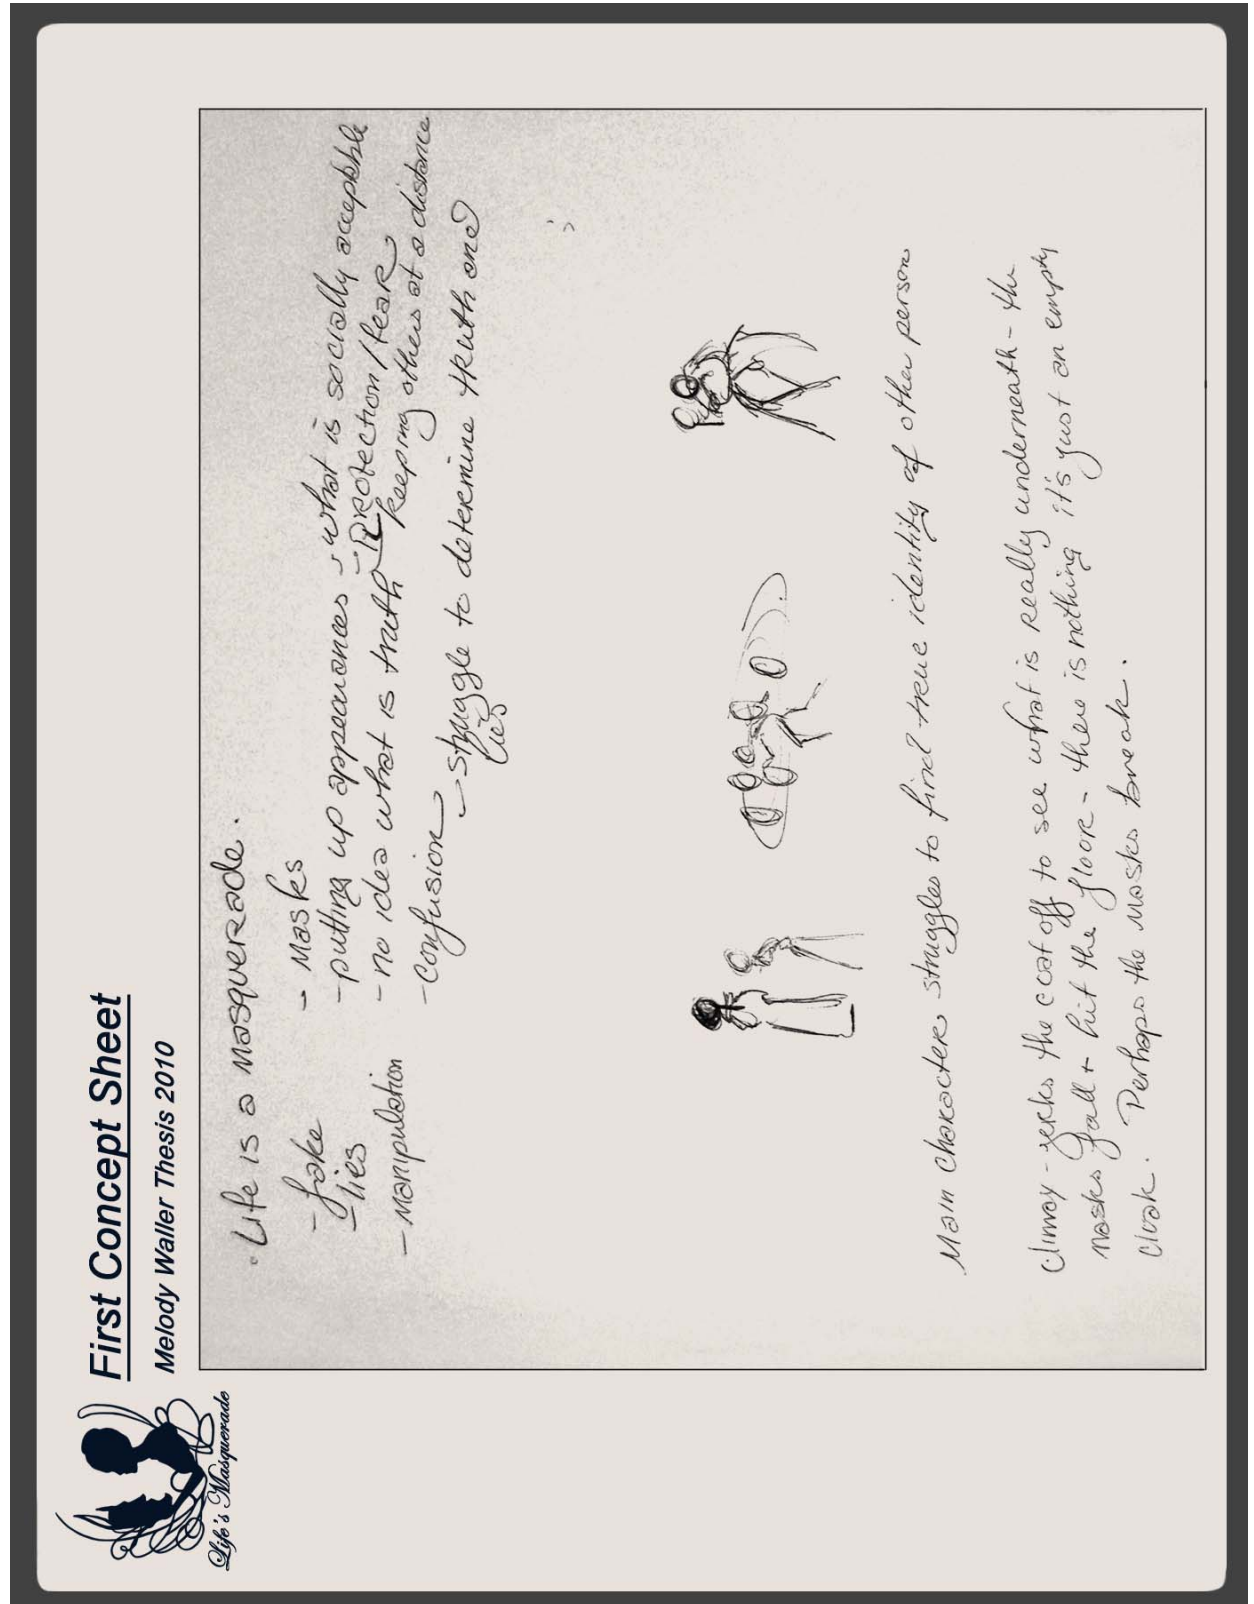 First Concept Sheet
Melody Waller Thesis 2010
Life's Masquerade
Life is a masquerade.
- fake
- lies
- manipulation
- masks
- putting up appearances - what is socially acceptable
- Protection/fear
- no idea what is truth keeping others at a distance
- confusion
- struggle to determine truth and
lies
Main character struggles to find true identity of other person
Climax - yerks the coat off to see what is really underneath - the
masks fall + hit the floor - there is nothing it's just an empty
cloak. Perhaps the masks break.